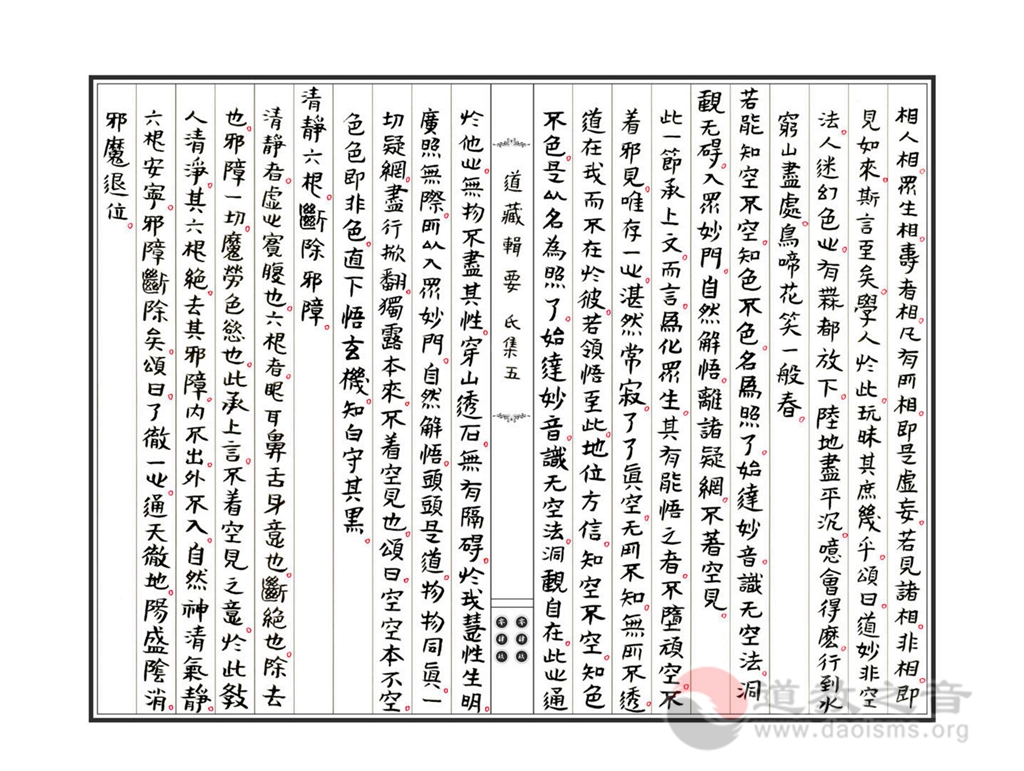 相人相眾生相壽者相凡有所相即是虛妄若見諸相非相即
見如來斯言至矣學人於此玩味其庶幾乎頌曰道妙非空
法人迷幻色心有無都放下陸地盡平沉噫會得麽行到水
窮山盡處鳥啼花笑一般春
若能知空不空知色不色名為照了始達妙音識无空法洞
觀无碍入眾妙門自然解悟離諸疑網不著空見
此一節承上文而言為化眾生其有能悟之者不墮頑空不
着邪見唯存一心湛然常寂了了真空无所不知無所不透
道在我而不在於彼若領悟至此地位方信知空不空知色
不色是以名為照了始達妙音識无空法洞觀自在此心通
道藏輯要 氐集五
於他心無物不盡其性穿山透石無有隔碍於我慧性生明
廣照無際所以入眾妙門自然解悟頭頭是道物物同真一
切疑網盡行掀翻獨露本來不着空見也頌曰空空本不空
色色即非色直下悟玄機知白守其黑
清靜六根斷除邪障
清靜者虛心實腹也六根者眼耳鼻舌身意也斷絕也除去
也邪障一切魔勞色慾也此承上言不着空見之意於此教
人清淨其六根絕去其邪障內不出外不入自然神清氣靜
六根安寧邪障斷除矣頌曰了徹一心通天徹地陽盛陰消
邪魔退位
道教之音
www.daoisms.org